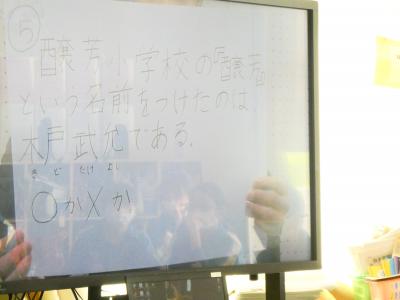 ⑤
醸芳小学校の『醸芳』
という名前をつけたのは
木戸武允である.
き ど たけ よし
○か×か